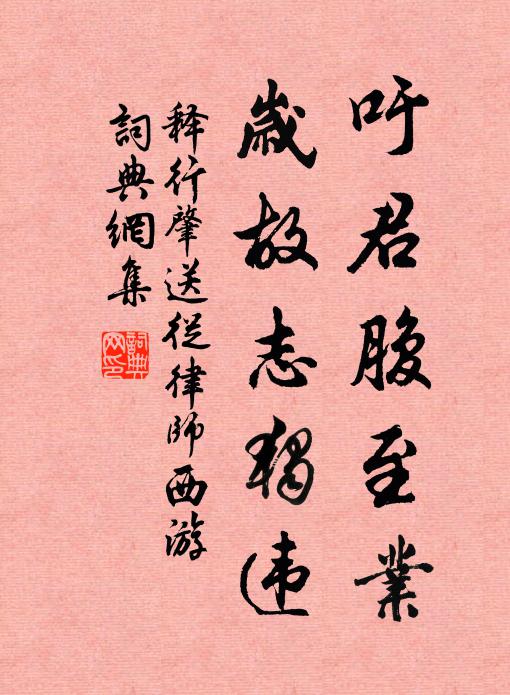 吁君腹至業
歲故志獨违
释行肇送從律師西游
詞典網集
詞典网印